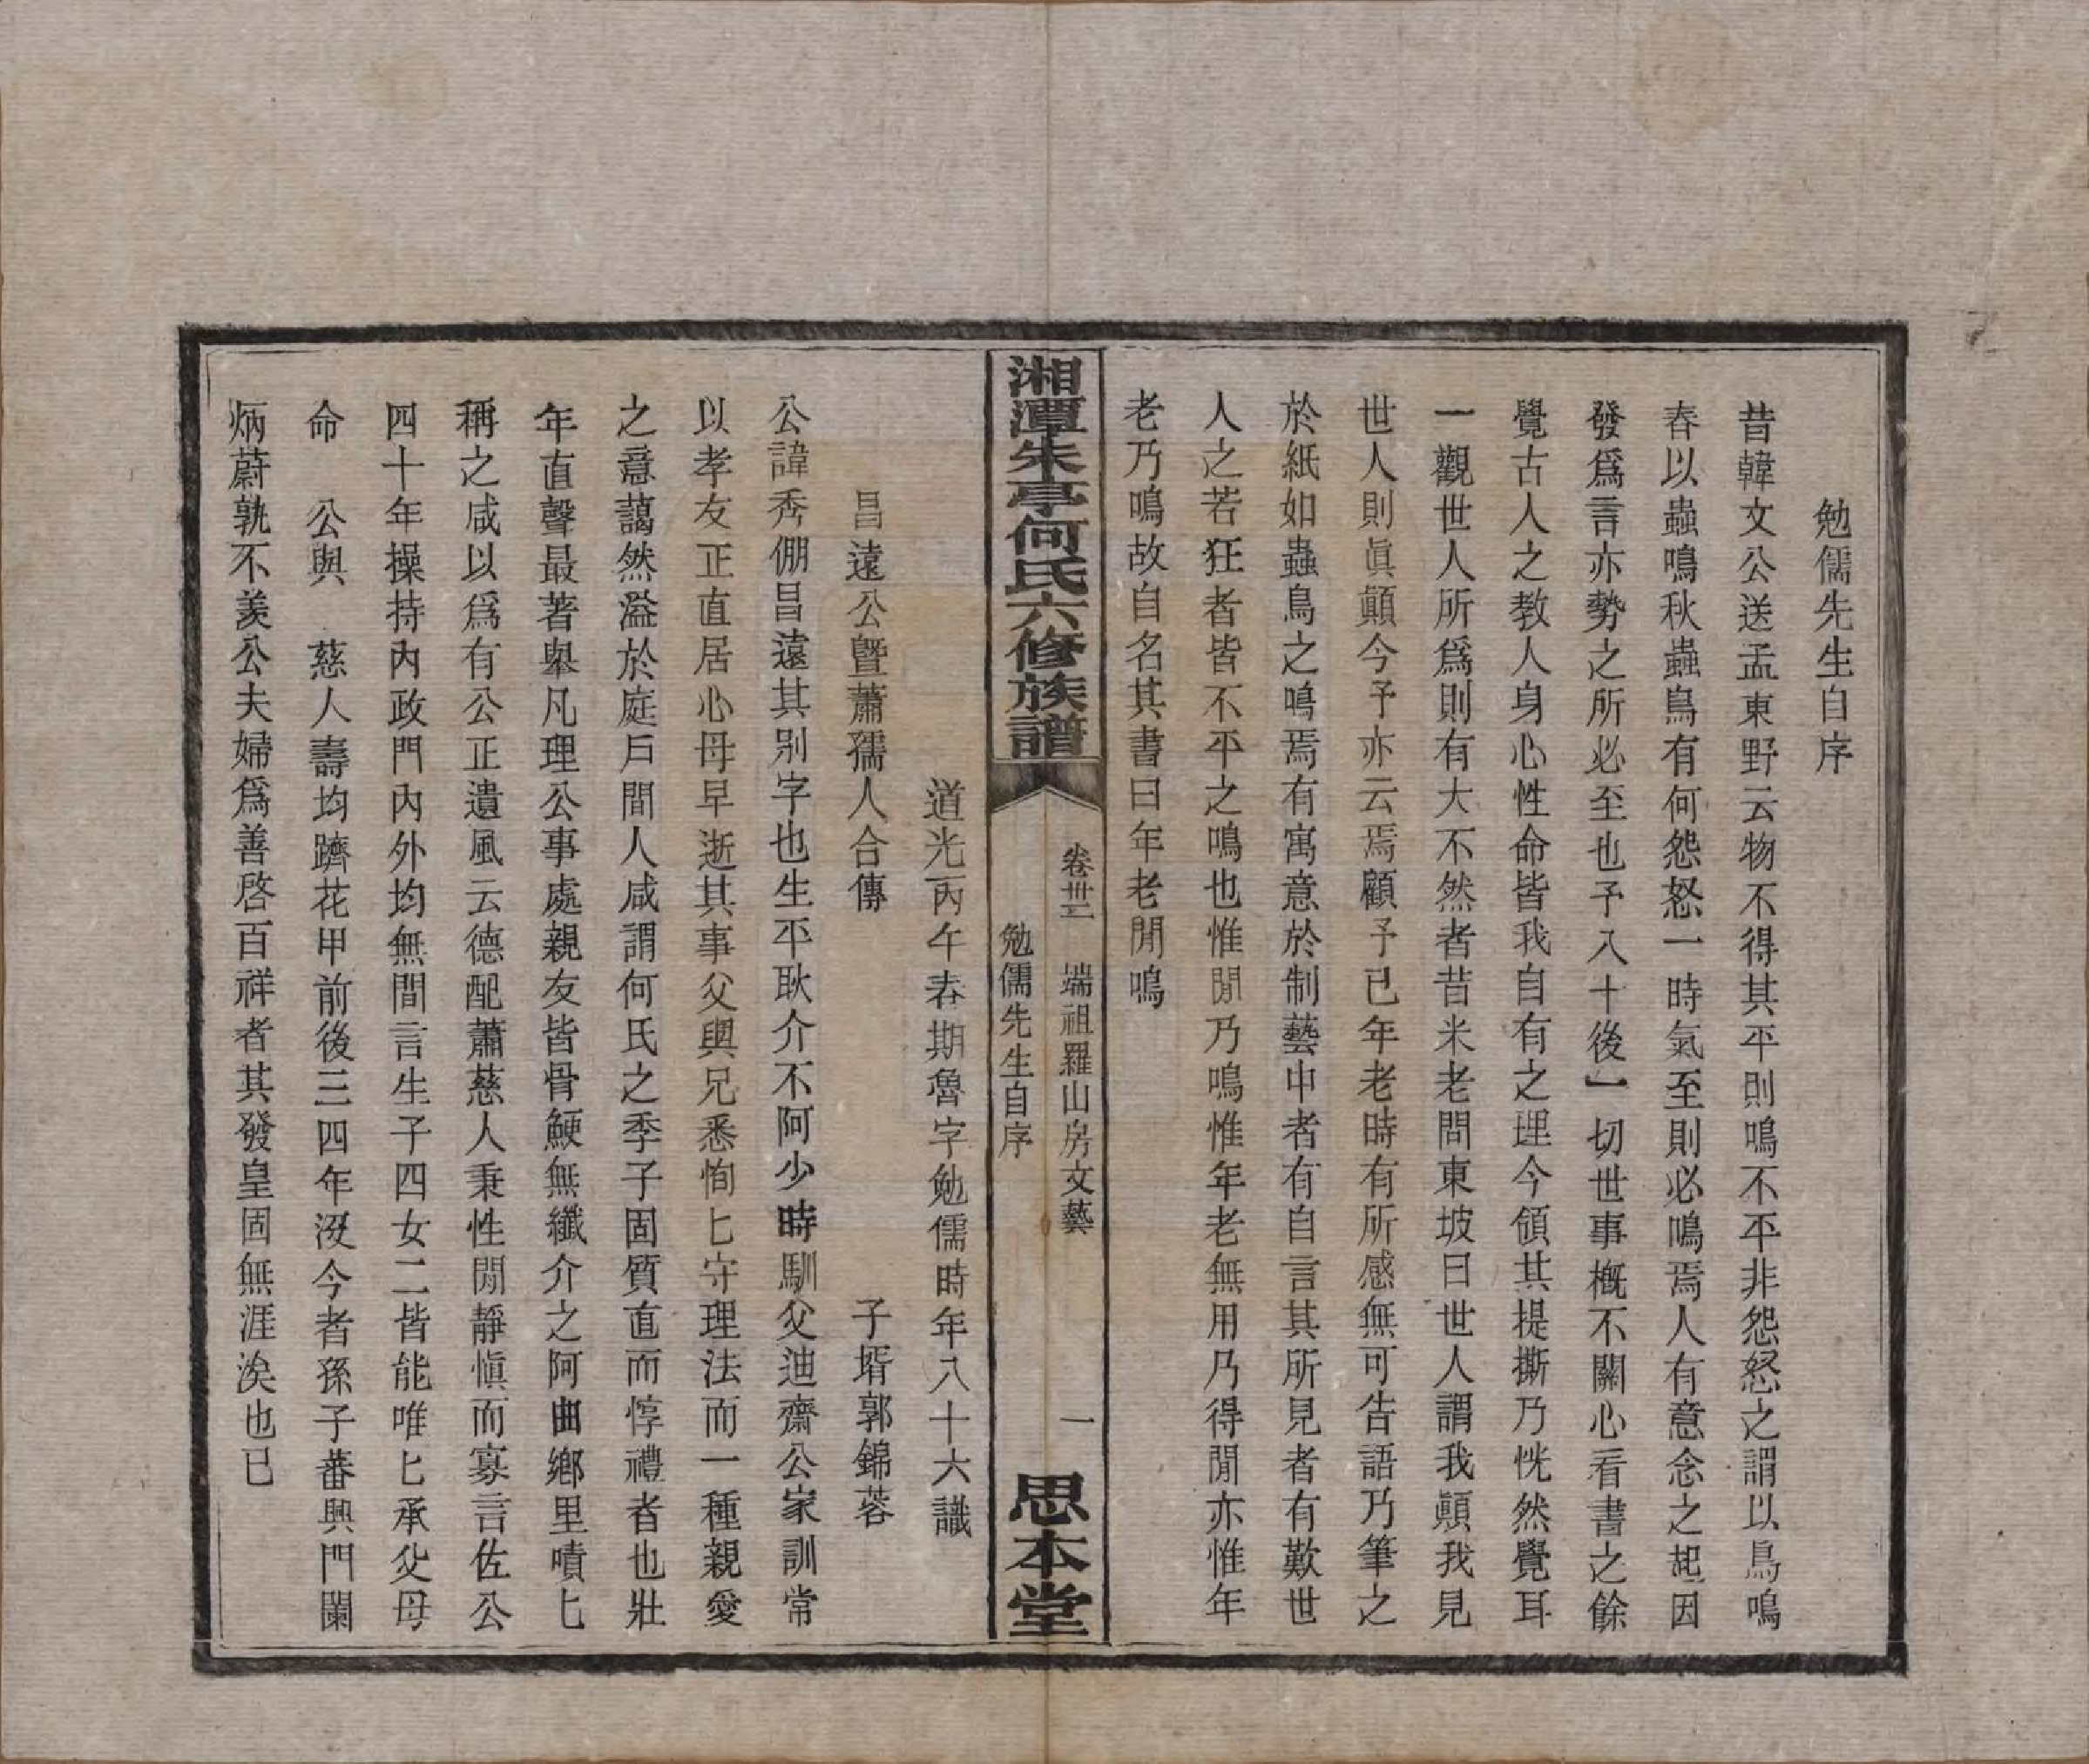 勉儒先生自序
昔韓文公送孟東野云物不得其平則鳴不平非怨怒之謂以鳥鳴
春以蟲鳴秋蟲鳥有何怨怒一時氣至則必鳴焉人有意念之起因
發爲言亦勢之所必至也予入十後一切世事槪不關心看書之餘
覺古人之教人身心性命皆我自有之理今領其提撕乃恍然覺耳
一觀世人所爲則有大不然者昔米老問東坡曰世人謂我顚我見
世人則眞顚今予亦云焉顧予已年老時有所感無可告語乃筆之
於紙如蟲鳥之鳴焉有寓意於制藝中者有自言其所見者有歎世
人之若狂者皆不平之鳴也惟閒乃鳴惟年老無用乃得閒亦惟年
老乃鳴故自名其書曰年老閒鳴
湘潭朱亭何氏六修族譜
卷卅二　端祖羅山房文藝
勉儒先生自序
一
思本堂
道光丙午春期魯字勉儒時年八十六識
昌遠公暨蕭孺人合傳
子壻郭錦蓉
公諱秀倗昌遠其別字也生平耿介不阿少時馴父迪齋公家訓常
以孝友正直居心母早逝其事父與兄悉恂匕守理法而一種親愛
之意藹然溢於庭戶間人咸謂何氏之季子固質直而惇禮者也壯
年直聲最著舉凡理公事處親友皆骨鯁無纖介之阿曲鄉里嘖匕
稱之咸以爲有公正遺風云德配蕭慈人秉性閒靜愼而寡言佐公
四十年操持內政門內外均無間言生子四女二皆能唯匕承父母
命　公與　慈人壽均躋花甲前後三四年沒今者孫子蕃興門闌
炳蔚孰不羨公夫婦爲善啓百祥者其發皇固無涯涘也已